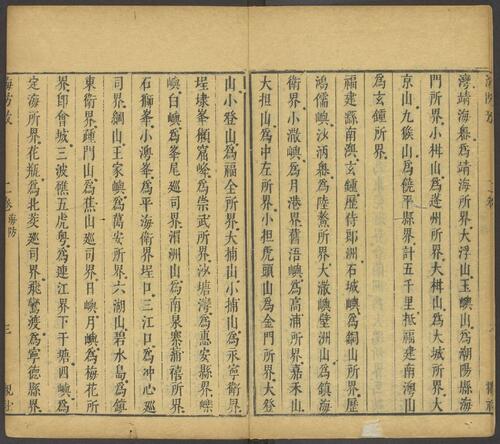 灣靖海嶴爲靖海所界大浮山玉嶼山爲潮陽縣海
門所界小柑山爲蓬州所界大柑山爲大城所界大
京山九猴山爲饒平縣界計五千里抵福建南澳山
爲玄鐘所界
福建縣南澳玄鐘歷侍郎洲石城嶼爲銅山所界歷
鴻儒嶼沙洒嶴爲陸鰲所界大澉嶼壁洲山爲鎮海
衛界小澉嶼爲月港界舊浯嶼爲高浦所界嘉禾山
大担山爲中左所界小担虎頭山爲金門所界大登
山小登山爲福全所界大捕山小捕山爲永寧衛界
埕埭峯傾窩峰爲崇武所界沙塘灣爲惠安縣界樂
嶼白嶼爲峯尾巡司界湄洲山爲南泉寨莆禧所界
石獅峯小澳峯爲平海衛界埕口三江口爲冲心巡
司界綱山王家嶼爲萬安所界六湖山碧水島爲鎮
東衛界門山爲蕉山巡司界日嶼月嶼爲梅花所
界卽會城三波礁五虎嶴爲連江界下干塘四嶼爲
定海所界花瓶爲北茭巡司界飛鸞渡爲寧德縣界
海防攷 二卷 海防 三